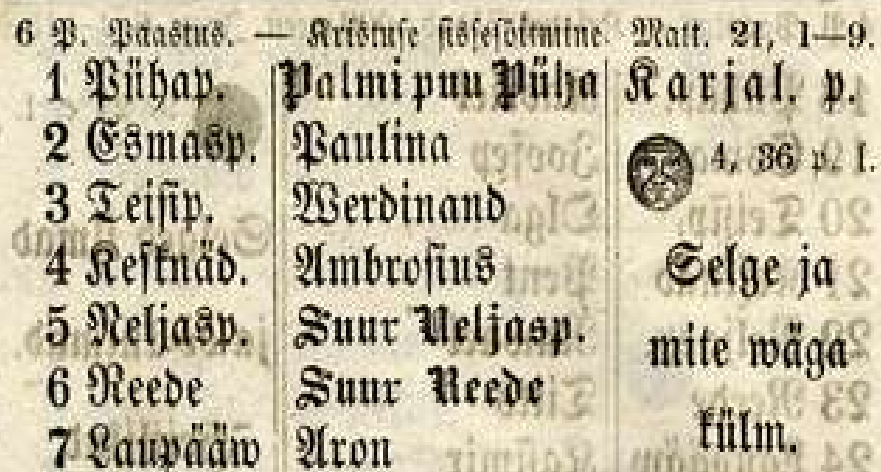 6 P. Paastus. — Kristuse sissesõitmine. Matt. 21, 1—9.
1 Pühap. Palmipuu Püha Karjal. p.
2 Esmasp. Paulina 4, 36 p. l.
3 Teisip. Werdinand
4 Kesknäd. Ambrosius Selge ja
5 Neljasp. Suur Neljasp. mite wäga
6 Reede Suur Reede
7 Laupääw Aron külm.